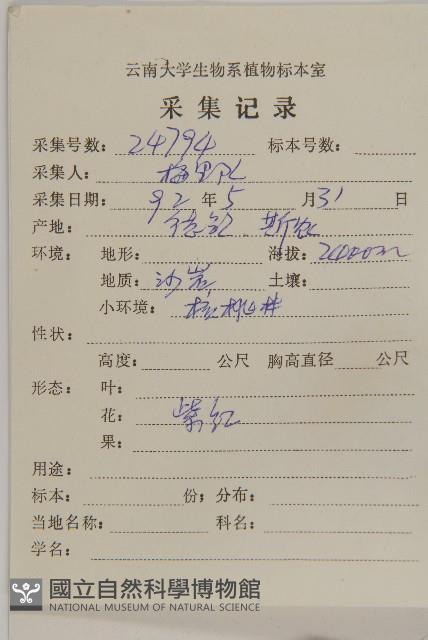 云南大学生物系植物标本室
采集记录
采集号数：24794 标本号数：
采集人：
采集日期：92年5月31日
产地：德钦、斯农
环境：地形： 海拔：2400m
地质：沙岩 土壤：
小环境：核桃林
性状：
高度： 公尺 胸高直径 公尺
形态：叶：
花：紫红
果：
用途：
标本： 份；分布：
当地名称： 科名：
学名：
國立自然科學博物館
NATIONAL MUSEUM OF NATURAL SCIENCE